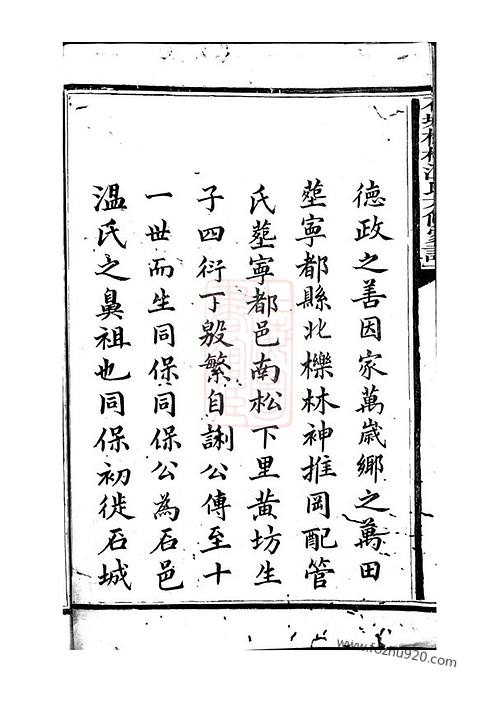 德政之善因家萬歲鄉之萬田
塟寧都縣北櫟林神推岡配管
氏塟寧都邑南松下里黄坊生
子四衍丁殷繁自誗公傳至十
一世而生同保同保公為石邑
溫氏之鼻祖也同保初徙石城
www.fozhu920.com